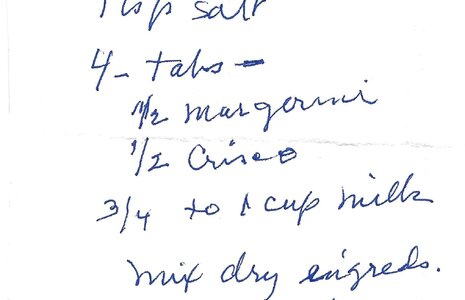 1 tsp salt
4 - tabs -
1/2 margerini
1/2 Crisco
3/4 to 1 cup milk
mix dry eigreds.